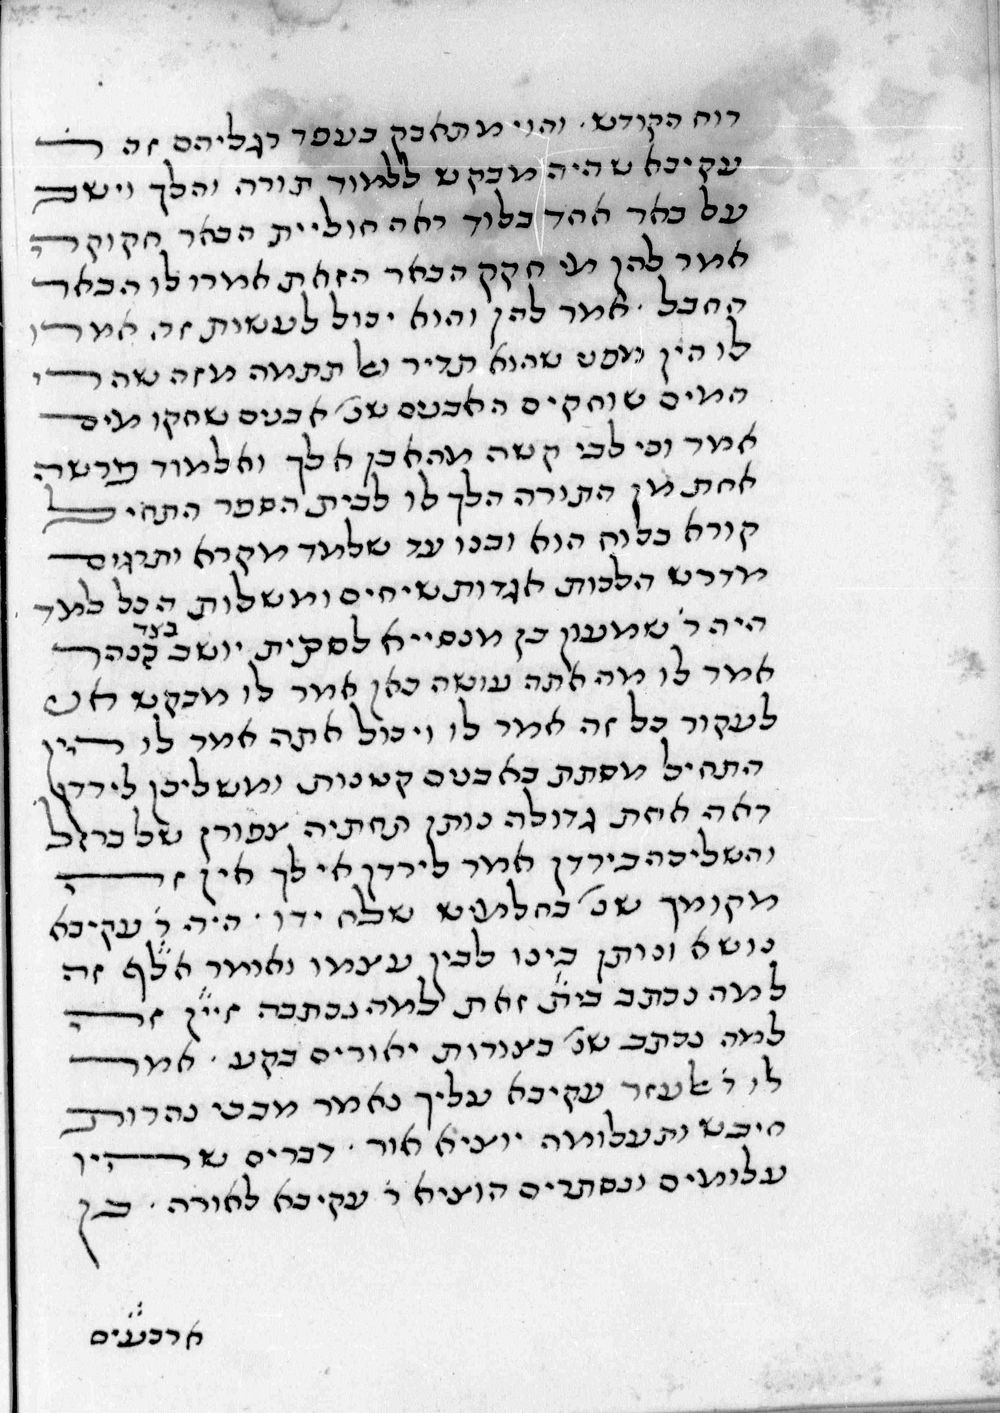 רוח הקודש. והוי מתאבק בעפר רגליהם זה ר׳
עקיבא שהיה מבקש ללמוד תורה והלך וישב
על באר אחד בלוד ראה חוליית הבאר חקוקה
אמר להן מי חקק הבאר הזאת אמרו לו הבאר
החבל. אמר להן והוא יכול לעשות זה אמרו
לו הין מפני שהוא תדיר ואל תתמה מזה שהרי
המים שוחקים האבנים שנ׳ אבנים שחקו מים
אמר וכי לבי קשה מהאבן אלך ואלמוד פרשה
אחת מן התורה הלך לו לבית הספר התחיל
קורא בלוח הוא ובנו עד שלמד מקרא ותרגום
מדרש הלכות אגדות שיחים ומשלות הכל למד
היה ר׳ שמעון בן מנסייא לסקית יושב בצד בנהר
אמר לו מה אתה עושה כאן אמר לו מבקש אני
לעקור כל זה אמר לו ויכול אתה אמר לו הין
התחיל מסתת באבנים קטנות ומשליכן לירדן
ראה אחת גדולה נותן תחתיה צפורן של ברזל
והשליכה בירדן אמר לירדן אי לך אין זה
מקומך שנ׳ בחלמיש שלח ידו. היה ר׳ עקיבא
נושא ונותן בינו לבין עצמו ואומר אלף זה
למה נכתב בית זאת למה נכתבה זיין זה
למה נכתב שנ׳ בצורות יאורים בקע. אמר
לו ר׳ אלעזר עקיבא עליך נאמר מבכי נהרות
חיבש ותעלומה יוציא אור. דברים שהיו
עלומים ונסתרים הוציא ר׳ עקיבא לאורה. בן
ארבעים